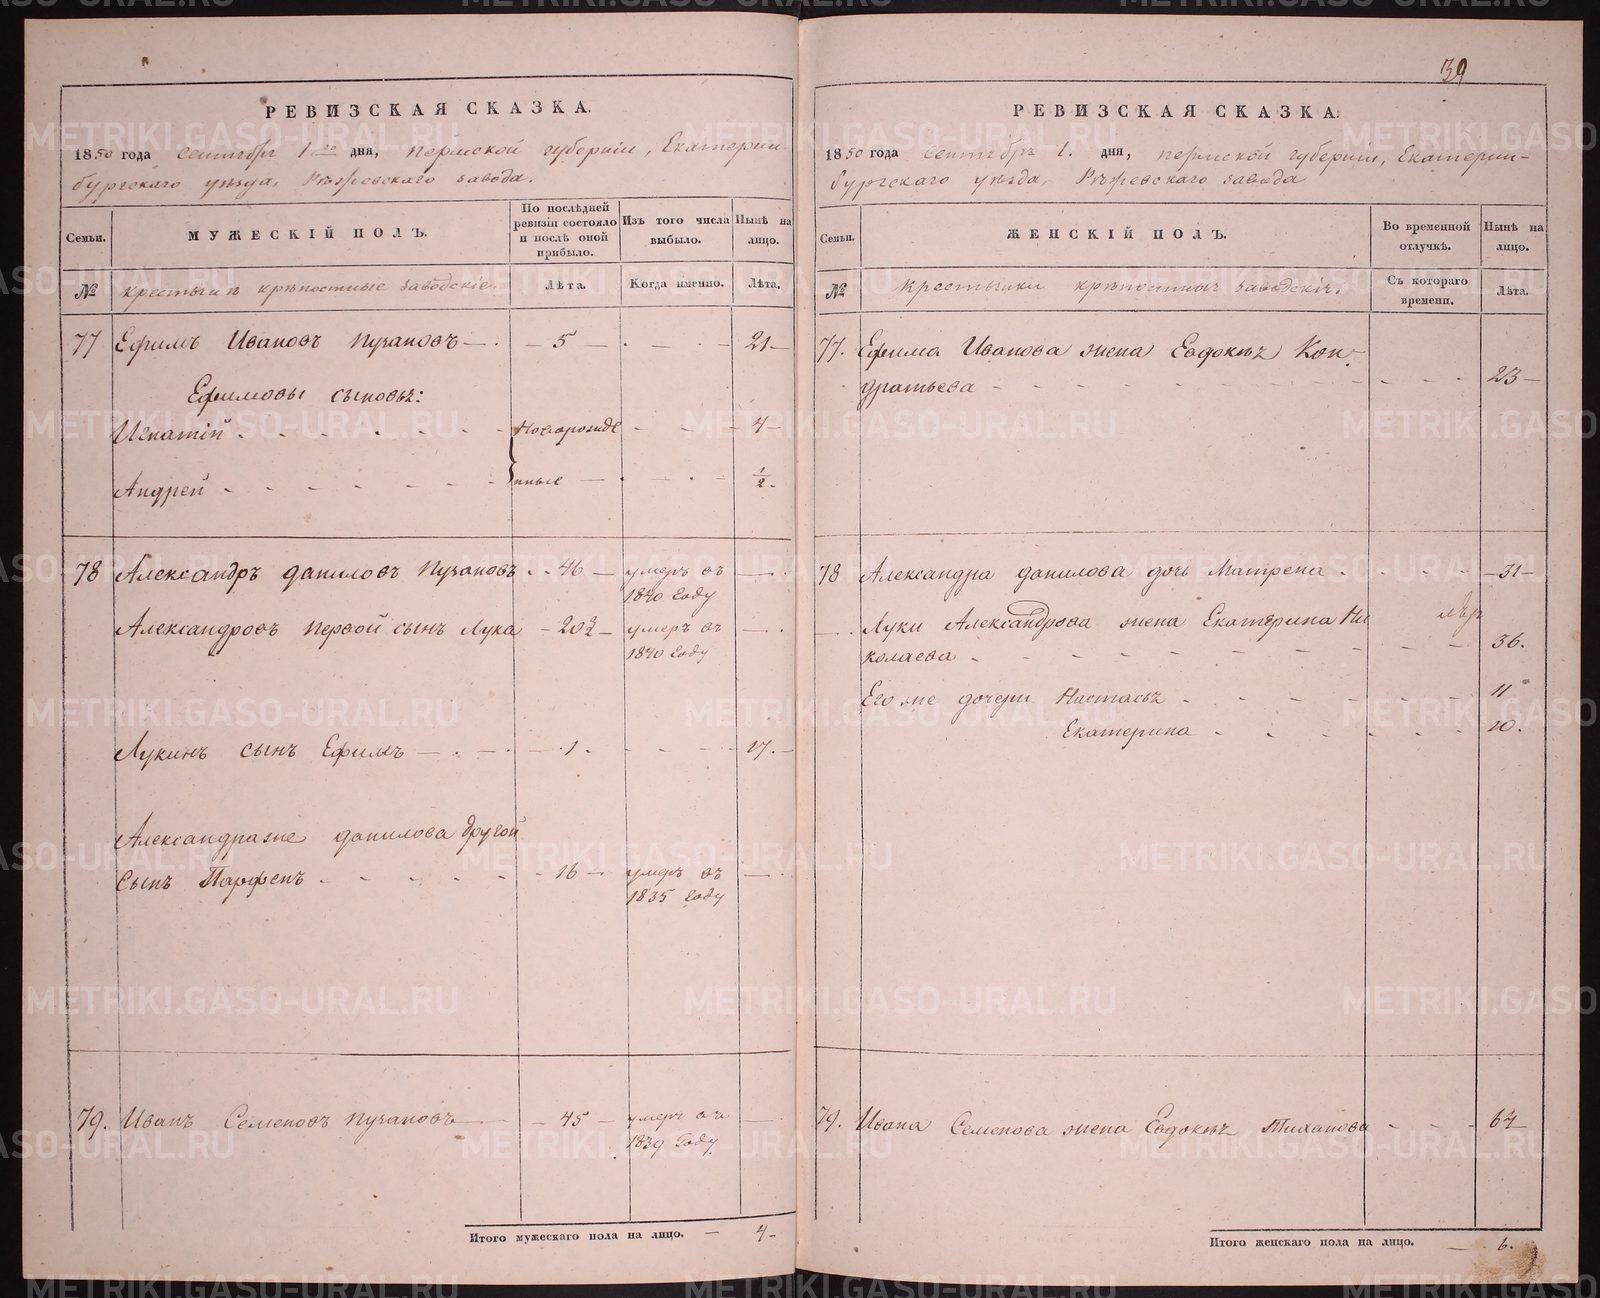 РЕВИЗСКАЯ СКАЗКА.
1850 года сентября 1го дня, Пермской губернiи, Екатерин-
бургскаго уѣзда, Рѣжевскаго завода.
Семьи.
МУЖЕСКIЙ ПОЛЪ.
По послѣдней ревизiи состояло и послѣ оной прибыло.
Изъ того числа выбыло.
Нынѣ на лицо.
№
Крестьяне крѣпостные заводскiе.
Лѣта.
Когда именно.
Лѣта.
77 Ефимъ Ивановъ Пучановъ — 5 — 21
Ефимовы сыновья:
Игнатiй - новорожде - 4
Андрей - нные - 1/2
78 Александръ Даниловъ Пучановъ - 46 - умеръ въ
1840 году
Александровъ первой сынъ Лука - 20 3/4 - умеръ въ
1840 году
Лукинъ сынъ Ефимъ - 1 - 17
Александра же Данилова другой
сынъ Парфенъ - 16 - умеръ въ
1835 году
79. Иванъ Семеновъ Пучановъ - 45 - умеръ въ
1839 году
Итого мужескаго пола на лицо. — 4
39
РЕВИЗСКАЯ СКАЗКА.
1850 года сентября 1. дня, Пермской губернiи, Екатерин-
бургскаго уѣзда, Рѣжевскаго завода
Семьи.
ЖЕНСКIЙ ПОЛЪ.
Во временной отлучкѣ.
Нынѣ на лицо.
№
Крестьянки крѣпостныя заводскiя.
Съ котораго времени.
Лѣта.
77. Ефима Иванова жена Евдокѣя Кон-
дратьева - 23
78 Александра Данилова дочь Матрена - 31
Луки Александрова жена Екатерина Ни
колаева - 36.
Его же дочери Настасья - 11
Екатерина - 10.
79. Ивана Семенова жена Евдокѣя Тиханова - 64
Итого женскаго пола на лицо. — 6.
METRIKI.GASO-URAL.RU